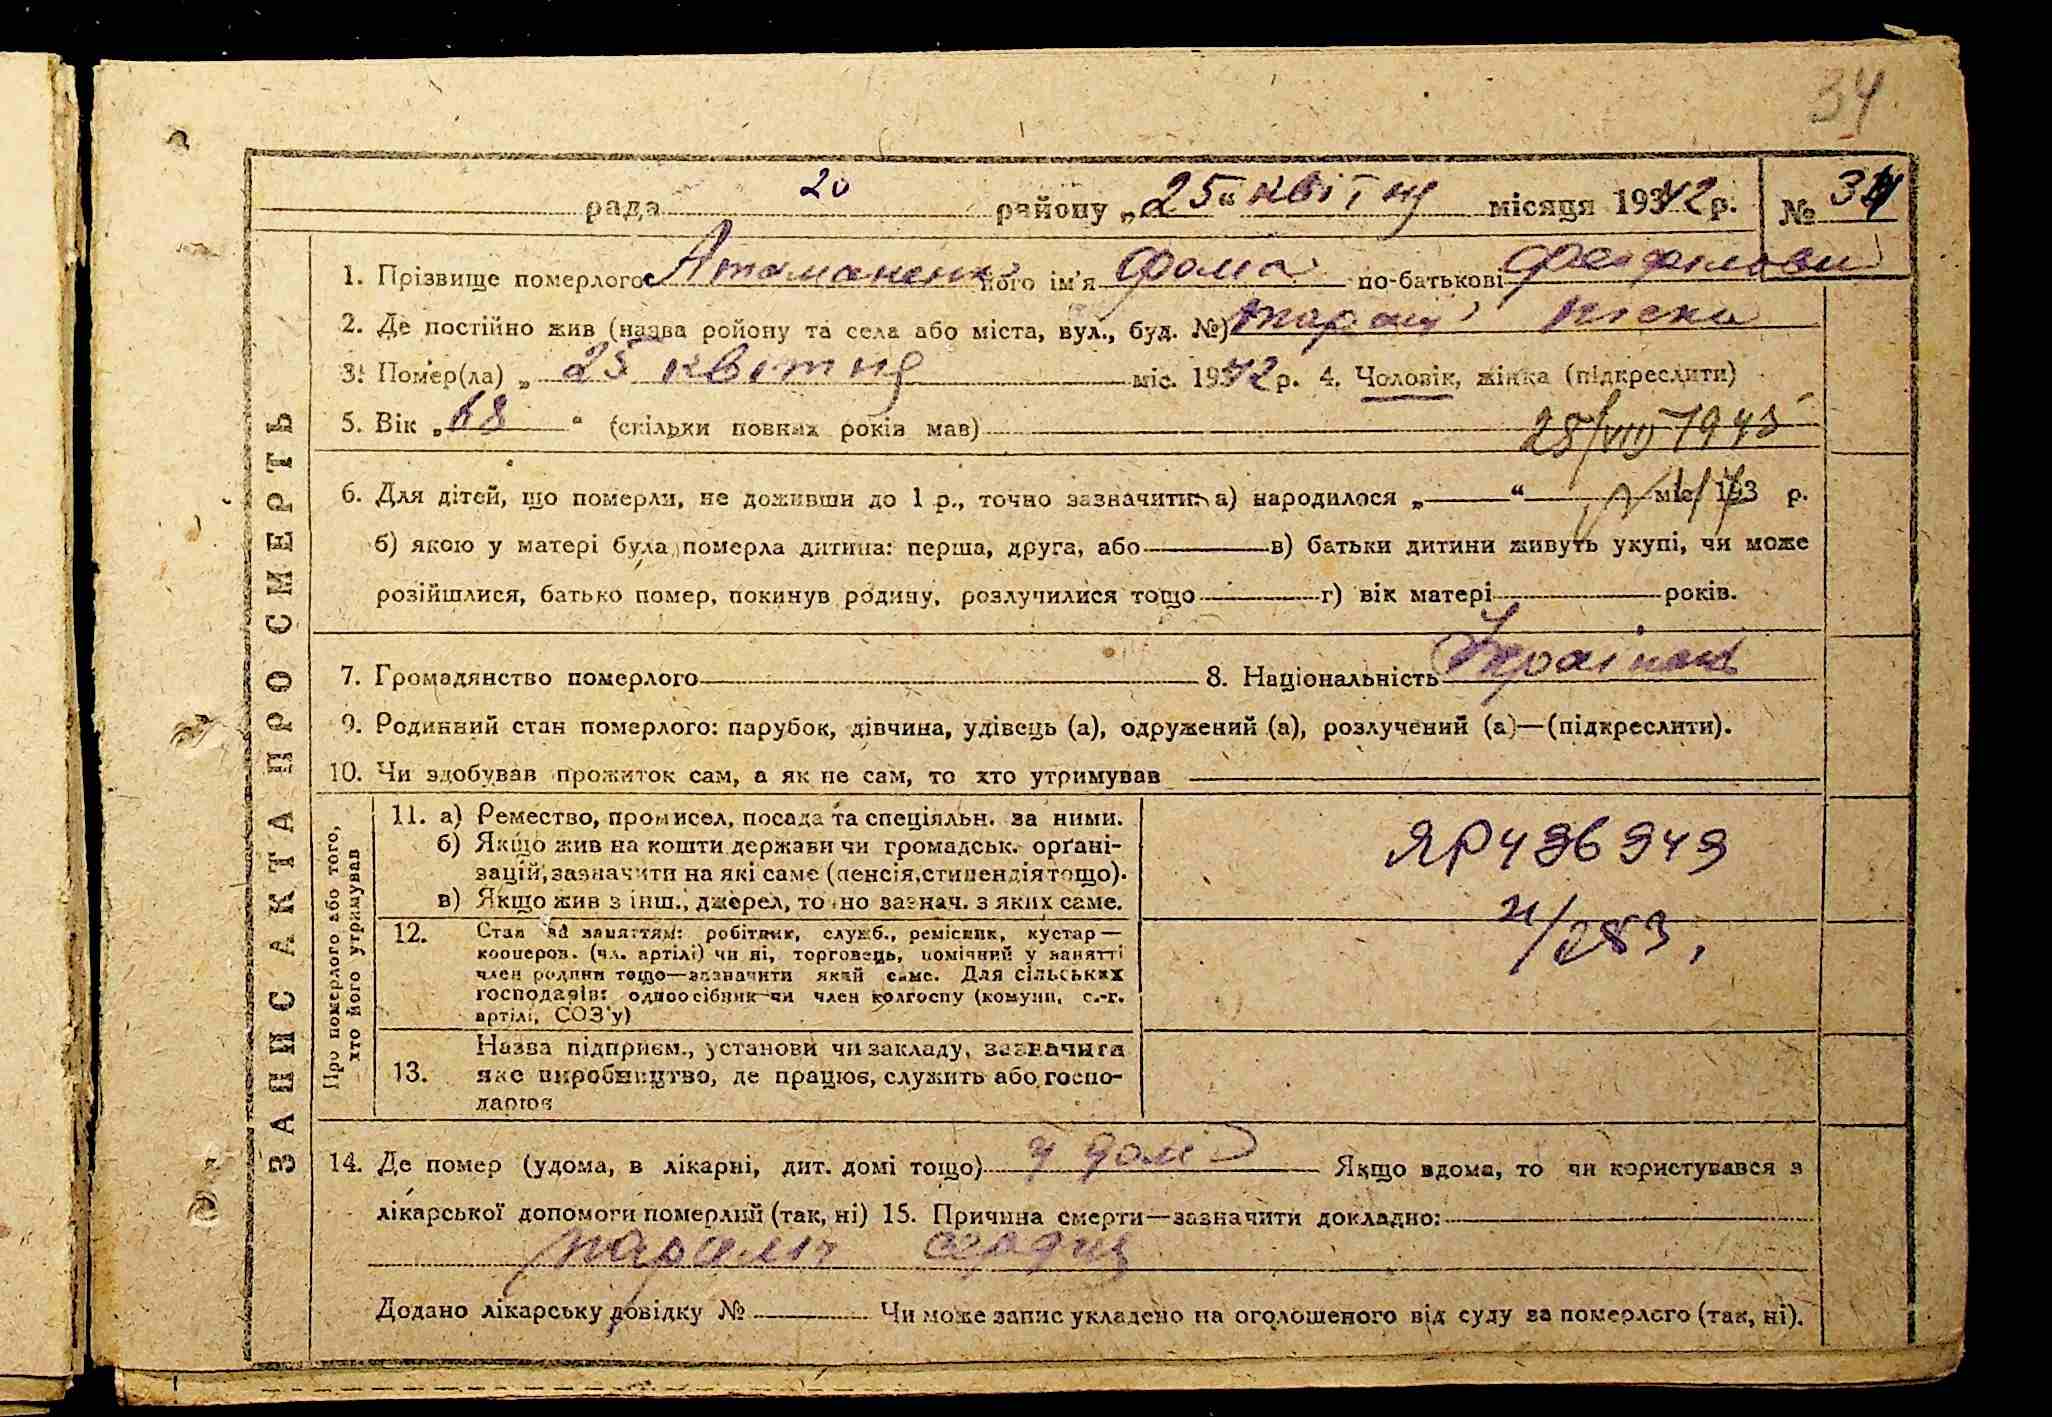 34
рада 20 району „25“ квітня місяця 1942 р. № 34
ЗАПИС АКТА ПРО СМЕРТЬ
1. Прізвище померлого Атаманенко його ім'я Фома по-батькові
2. Де постійно жив (назва ройону та села або міста, вул., буд. №)
3. Помер(ла) „ 25 квітня міс. 1942 р. 4. Чоловік, жінка (підкреслити)
5. Вік „68“ (скільки повних років мав)
28/VIII 1943
6. Для дітей, що померли, не доживши до 1 р., точно зазначити: а) народилося „—“ міс. 193 р.
б) якою у матері була померла дитина: перша, друга, або — в) батьки дитини живуть укупі, чи може
розійшлися, батько помер, покинув родину, розлучилися тощо — г) вік матері років.
7. Громадянство померлого 8. Національність Українець
9. Родинний стан померлого: парубок, дівчина, удівець (а), одружений (а), розлучений (а)—(підкреслити).
10. Чи здобував прожиток сам, а як не сам, то хто утримував
Про померлого або того,
хто його утримував
11. а) Ремество, промисел, посада та спеціяльн. за ними.
б) Якщо жив на кошти держави чи громадськ. орґані-
зацій, зазначити на які саме (пенсія, стипендія тощо).
в) Якщо жив з інш., джерел, точно зазнач. з яких саме.
ЯР436349
12. Стан за заняттям: робітник, служб., ремісник, кустар—
кооперов. (чл. артілі) чи ні, торговець, помічний у занятті
член родини тощо—зазначити який саме. Для сільських
господарів: одноосібник чи член колгоспу (комуни, с.-г.
артілі, СОЗ'у)
13. Назва підприєм., установи чи закладу, зазначити
яке виробництво, де працює, служить або госпо-
дарює
14. Де помер (удома, в лікарні, дит. домі тощо) у домі Якщо вдома, то чи користувався з
лікарської допомоги померлий (так, ні) 15. Причина смерти—зазначити докладно:
параліч сердця
Додано лікарську довідку № — Чи може запис укладено на оголошеного від суду за померлого (так, ні).